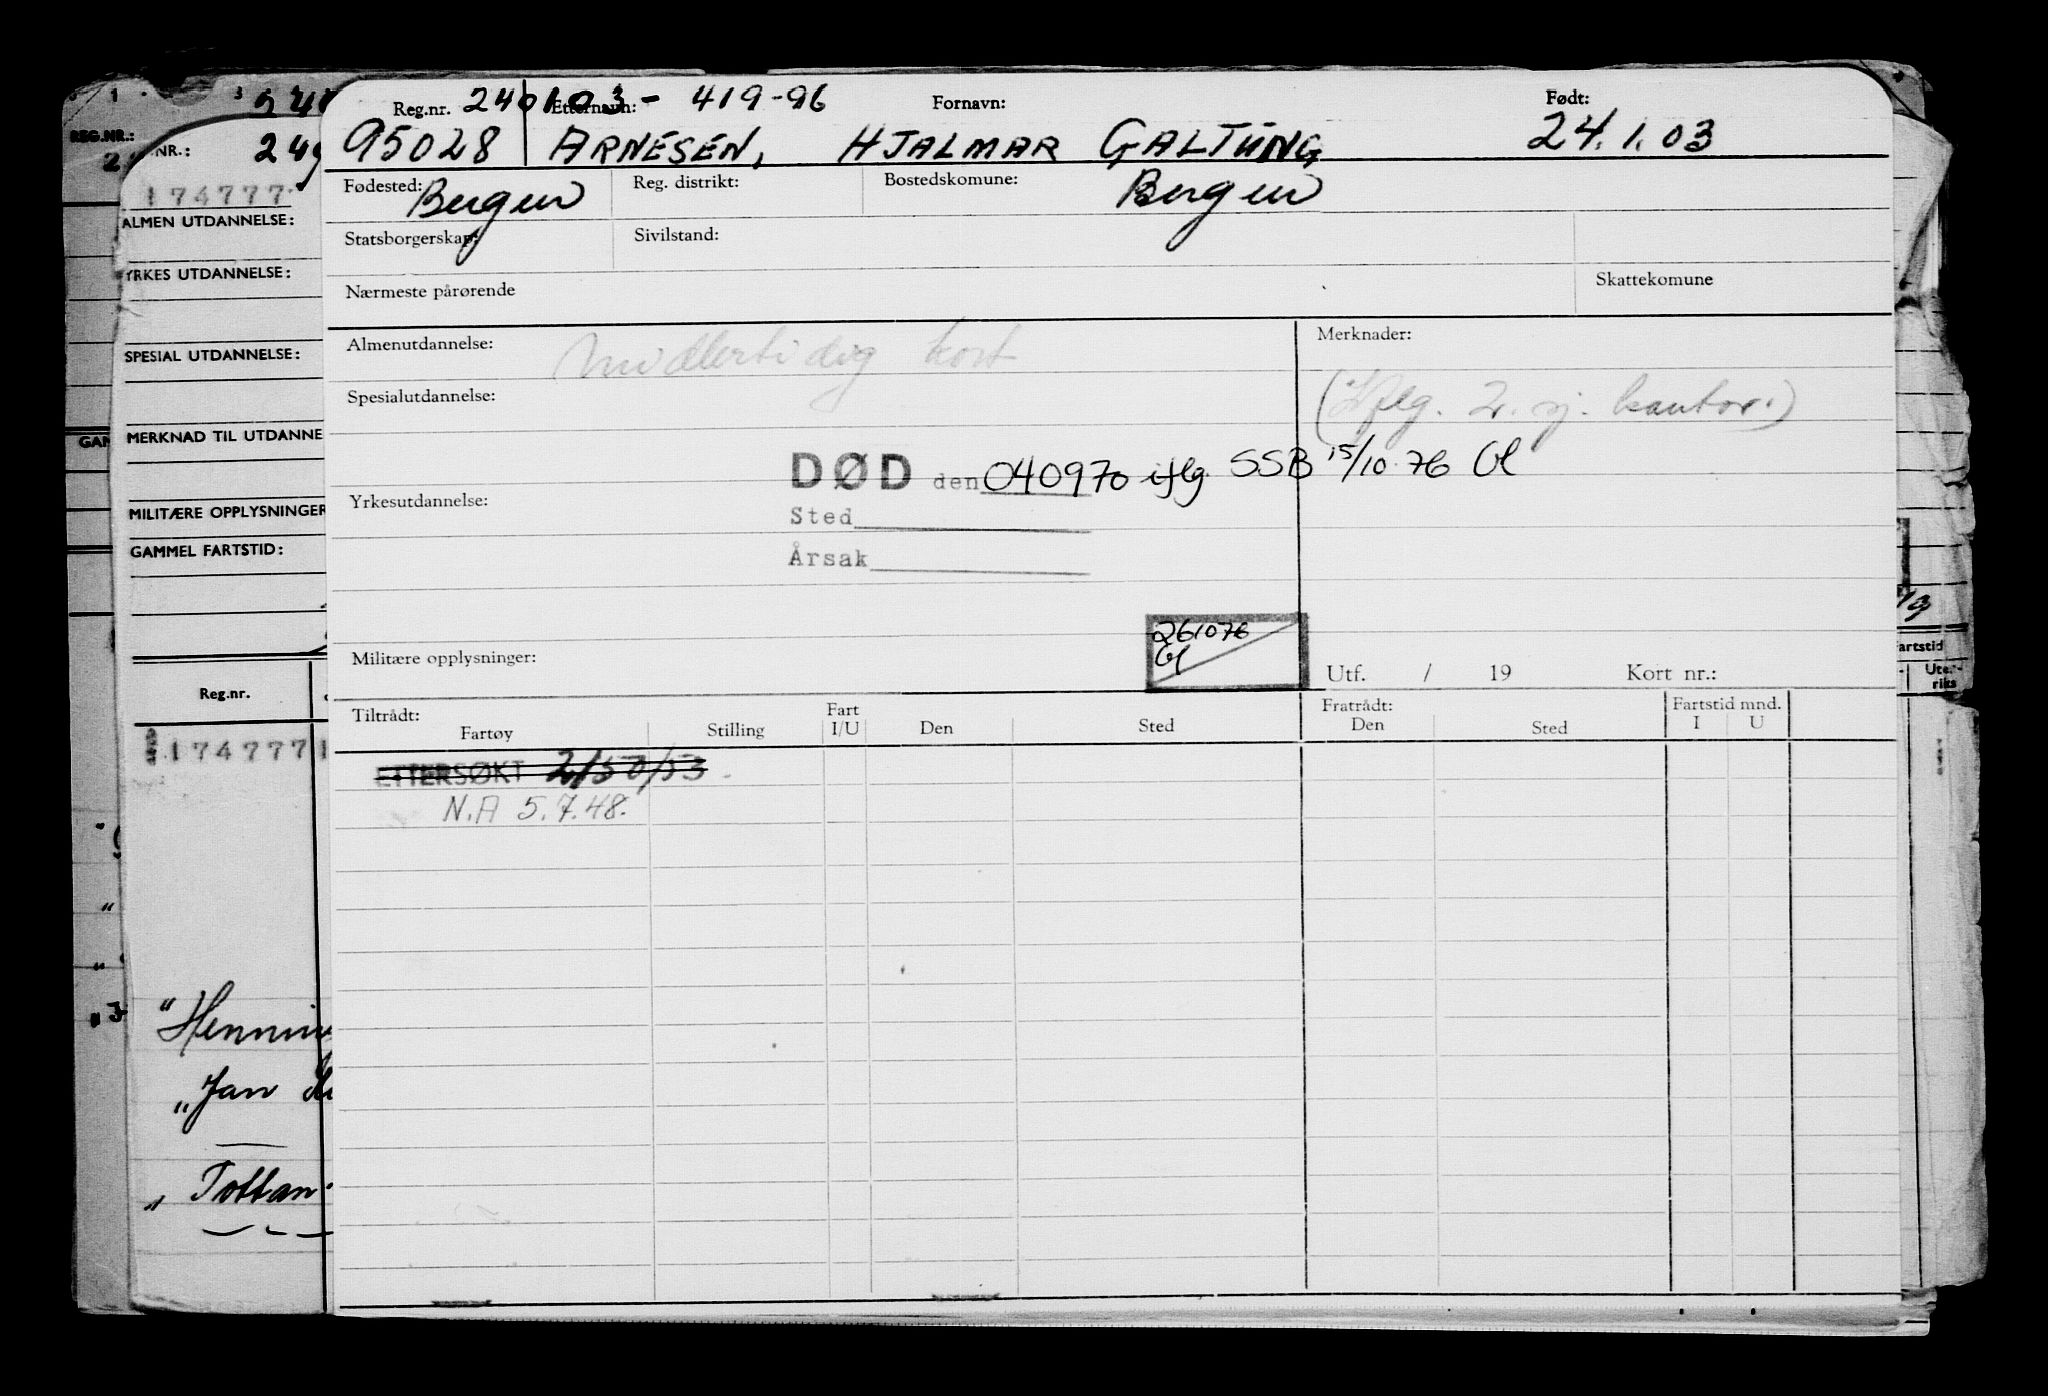 Reg.nr. 240103- Etternavn: 419-96 Fornavn: Født:
95028 ARNESEN, HJALMAR GALTUNG 24.1.03
Fødested: Bergen Reg. distrikt: Bostedskomune: Bergen
Statsborgerskap: Sivilstand:
Nærmeste pårørende Skattekomune
Almenutdannelse: Midlertidig kort Merknader:
Spesialutdannelse: (Iflg. 2. sj. kontor.)
DØD den 040970 iflg. SSB 15/10 76
Yrkesutdannelse:
Sted
Årsak
261076
Militære opplysninger: Utf. / 19 Kort nr.:
Tiltrådt: Fart Fratrådt: Fartstid mnd.
Fartøy Stilling I/U Den Sted Den Sted I U
ETTERSØKT 2/50/53
N.A 5.7.48.
REG.NR.:
NR.: 249
174777
ALMEN UTDANNELSE:
YRKES UTDANNELSE:
SPESIAL UTDANNELSE:
MERKNAD TIL UTDANNE
MILITÆRE OPPLYSNINGER
GAMMEL FARTSTID:
Reg.nr.
1747771
"Hennin
"Jan
" Tottan
artstid
Ute.-
riks